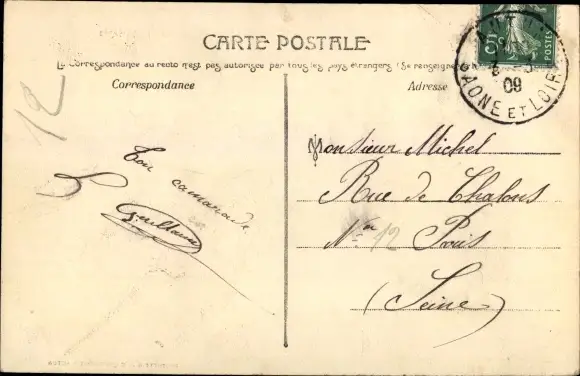 CARTE POSTALE
La Correspondance au recto n'est pas autorisée par tous les pays étrangers (Se renseigner
Correspondance
Adresse
3 - 3
09
SAONE ET LOIRE
12
Ton camarade
Guillaume
Monsieur Michel
Rue de Chalons
No 12 Paris
(Seine)